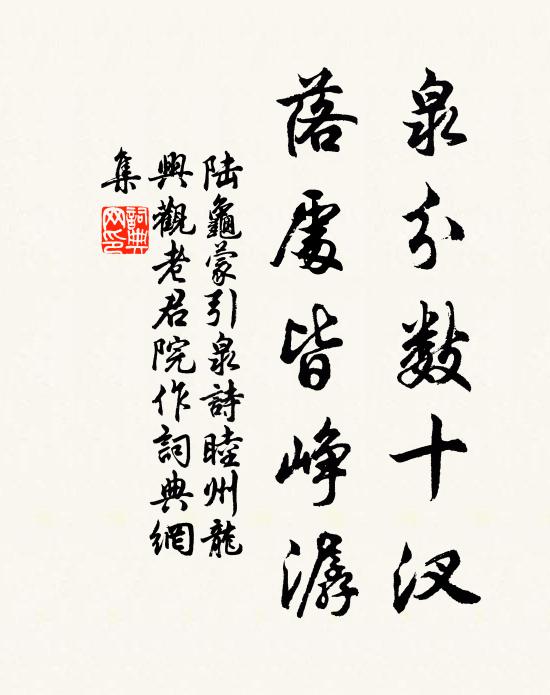 泉分数十汊
落處皆峥潺
陆龜蒙引泉詩睦州龍
興觀老君院作詞典網
集
詞典網印